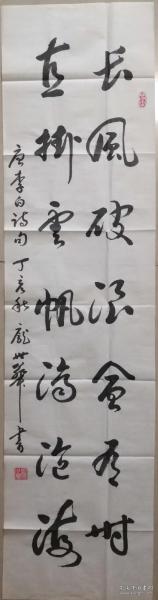 長風破浪會有时
直掛雲帆濟滄海
唐李白詩句 丁亥秋 龐世華書